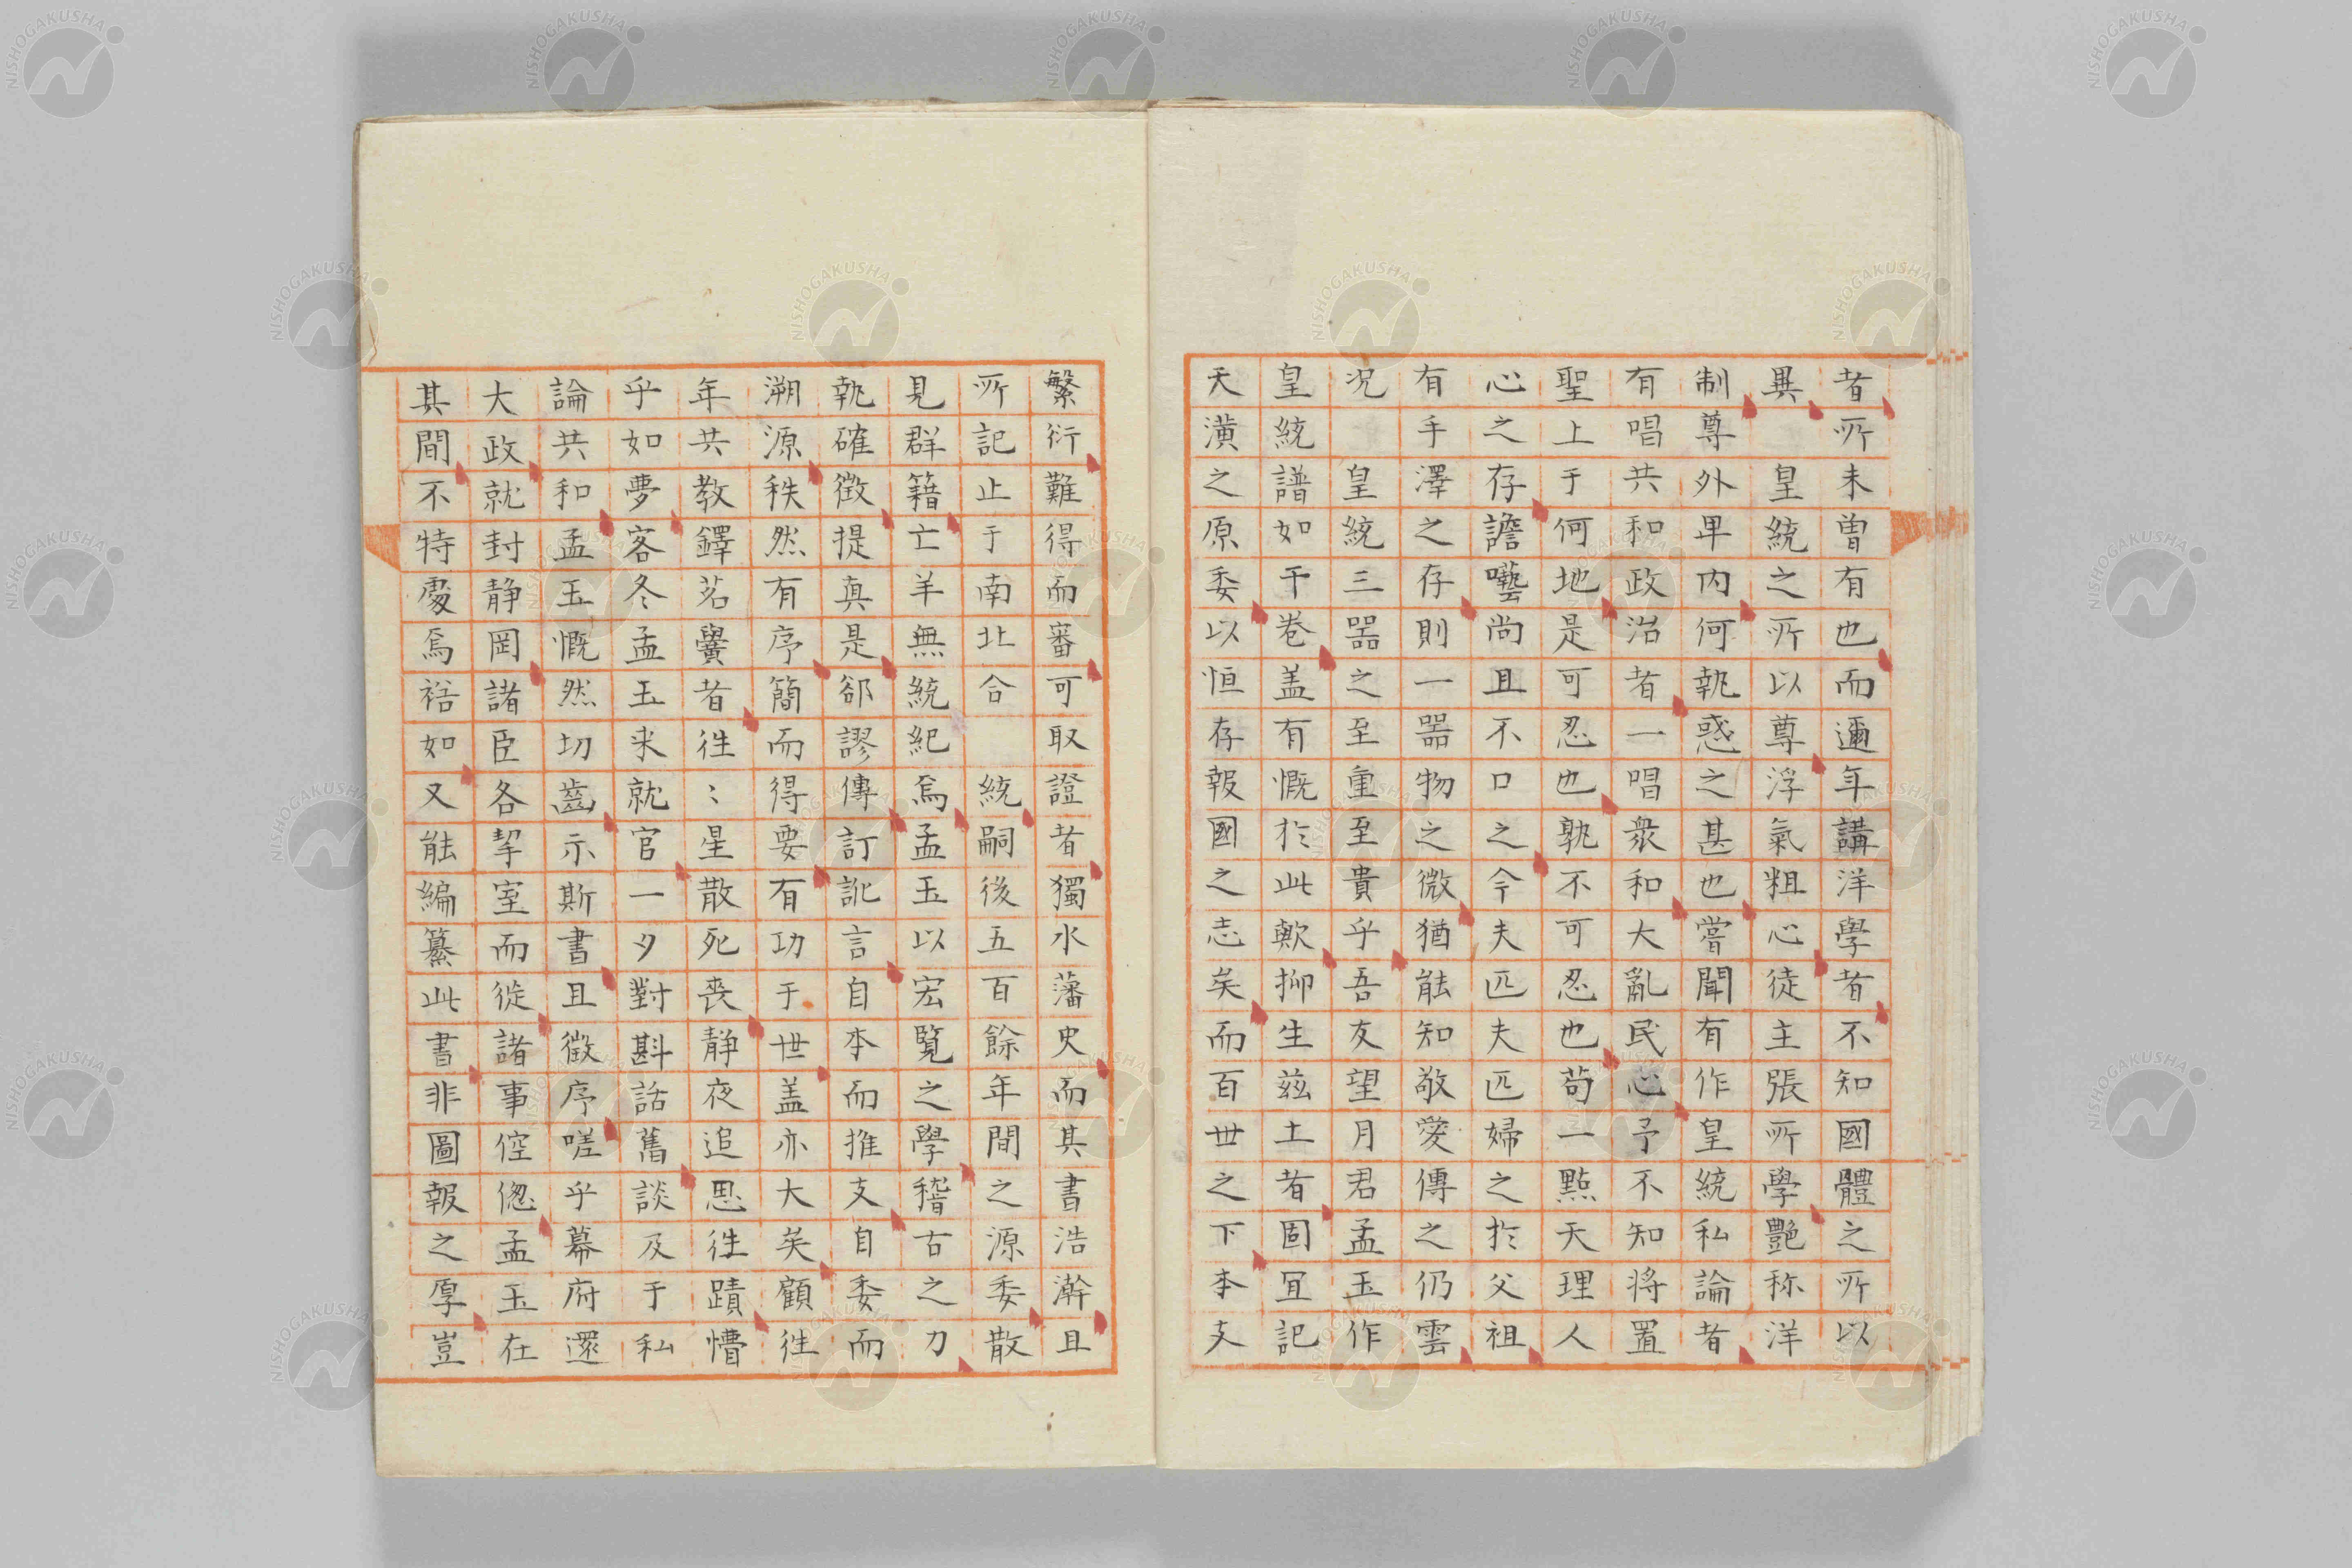 者所未曽有也而邇年講洋學者不知國體之所以
異 皇統之所以尊浮氣粗心徒主張所學艷称洋
制尊外卑内何執惑之甚也嘗聞有作皇統私論者
有唱共和政治者一唱衆和大亂民心予不知将置
聖上于何地是可忍也孰不可忍也苟一㸃天理人
心之存譫囈尚且不口之今夫匹夫匹婦之於父祖
有手澤之存則一噐物之微猶能知敬愛傳之仍雲
况 皇統三噐之至重至貴乎吾友望月君孟玉作
皇統譜如干巻盖有慨於此歟抑生茲土者固冝記
天潢之原委以恒存報國之志矣而百世之下本支
繁衍難得而審可取證者獨水藩史而其書浩澣且
所記止于南北合 統嗣後五百餘年間之源委散
見群籍亡羊無統紀焉孟玉以宏覧之學稽古之力
執確徴提真是郤謬傳訂訛言自本而推支自委而
溯源秩然有序簡而得要有功于世盖亦大矣顧徃
年共教鐸茗黌者徃〻星散死喪静夜追思徃蹟懵
乎如夢客冬孟玉来就官一夕對斟話舊談及于私
論共和孟玉慨然切齒示斯書且徴序嗟乎幕府還
大政就封静岡諸臣各挈室而従諸事倥偬孟玉在
其間不特處焉裕如又能編纂此書非圖報之厚豈